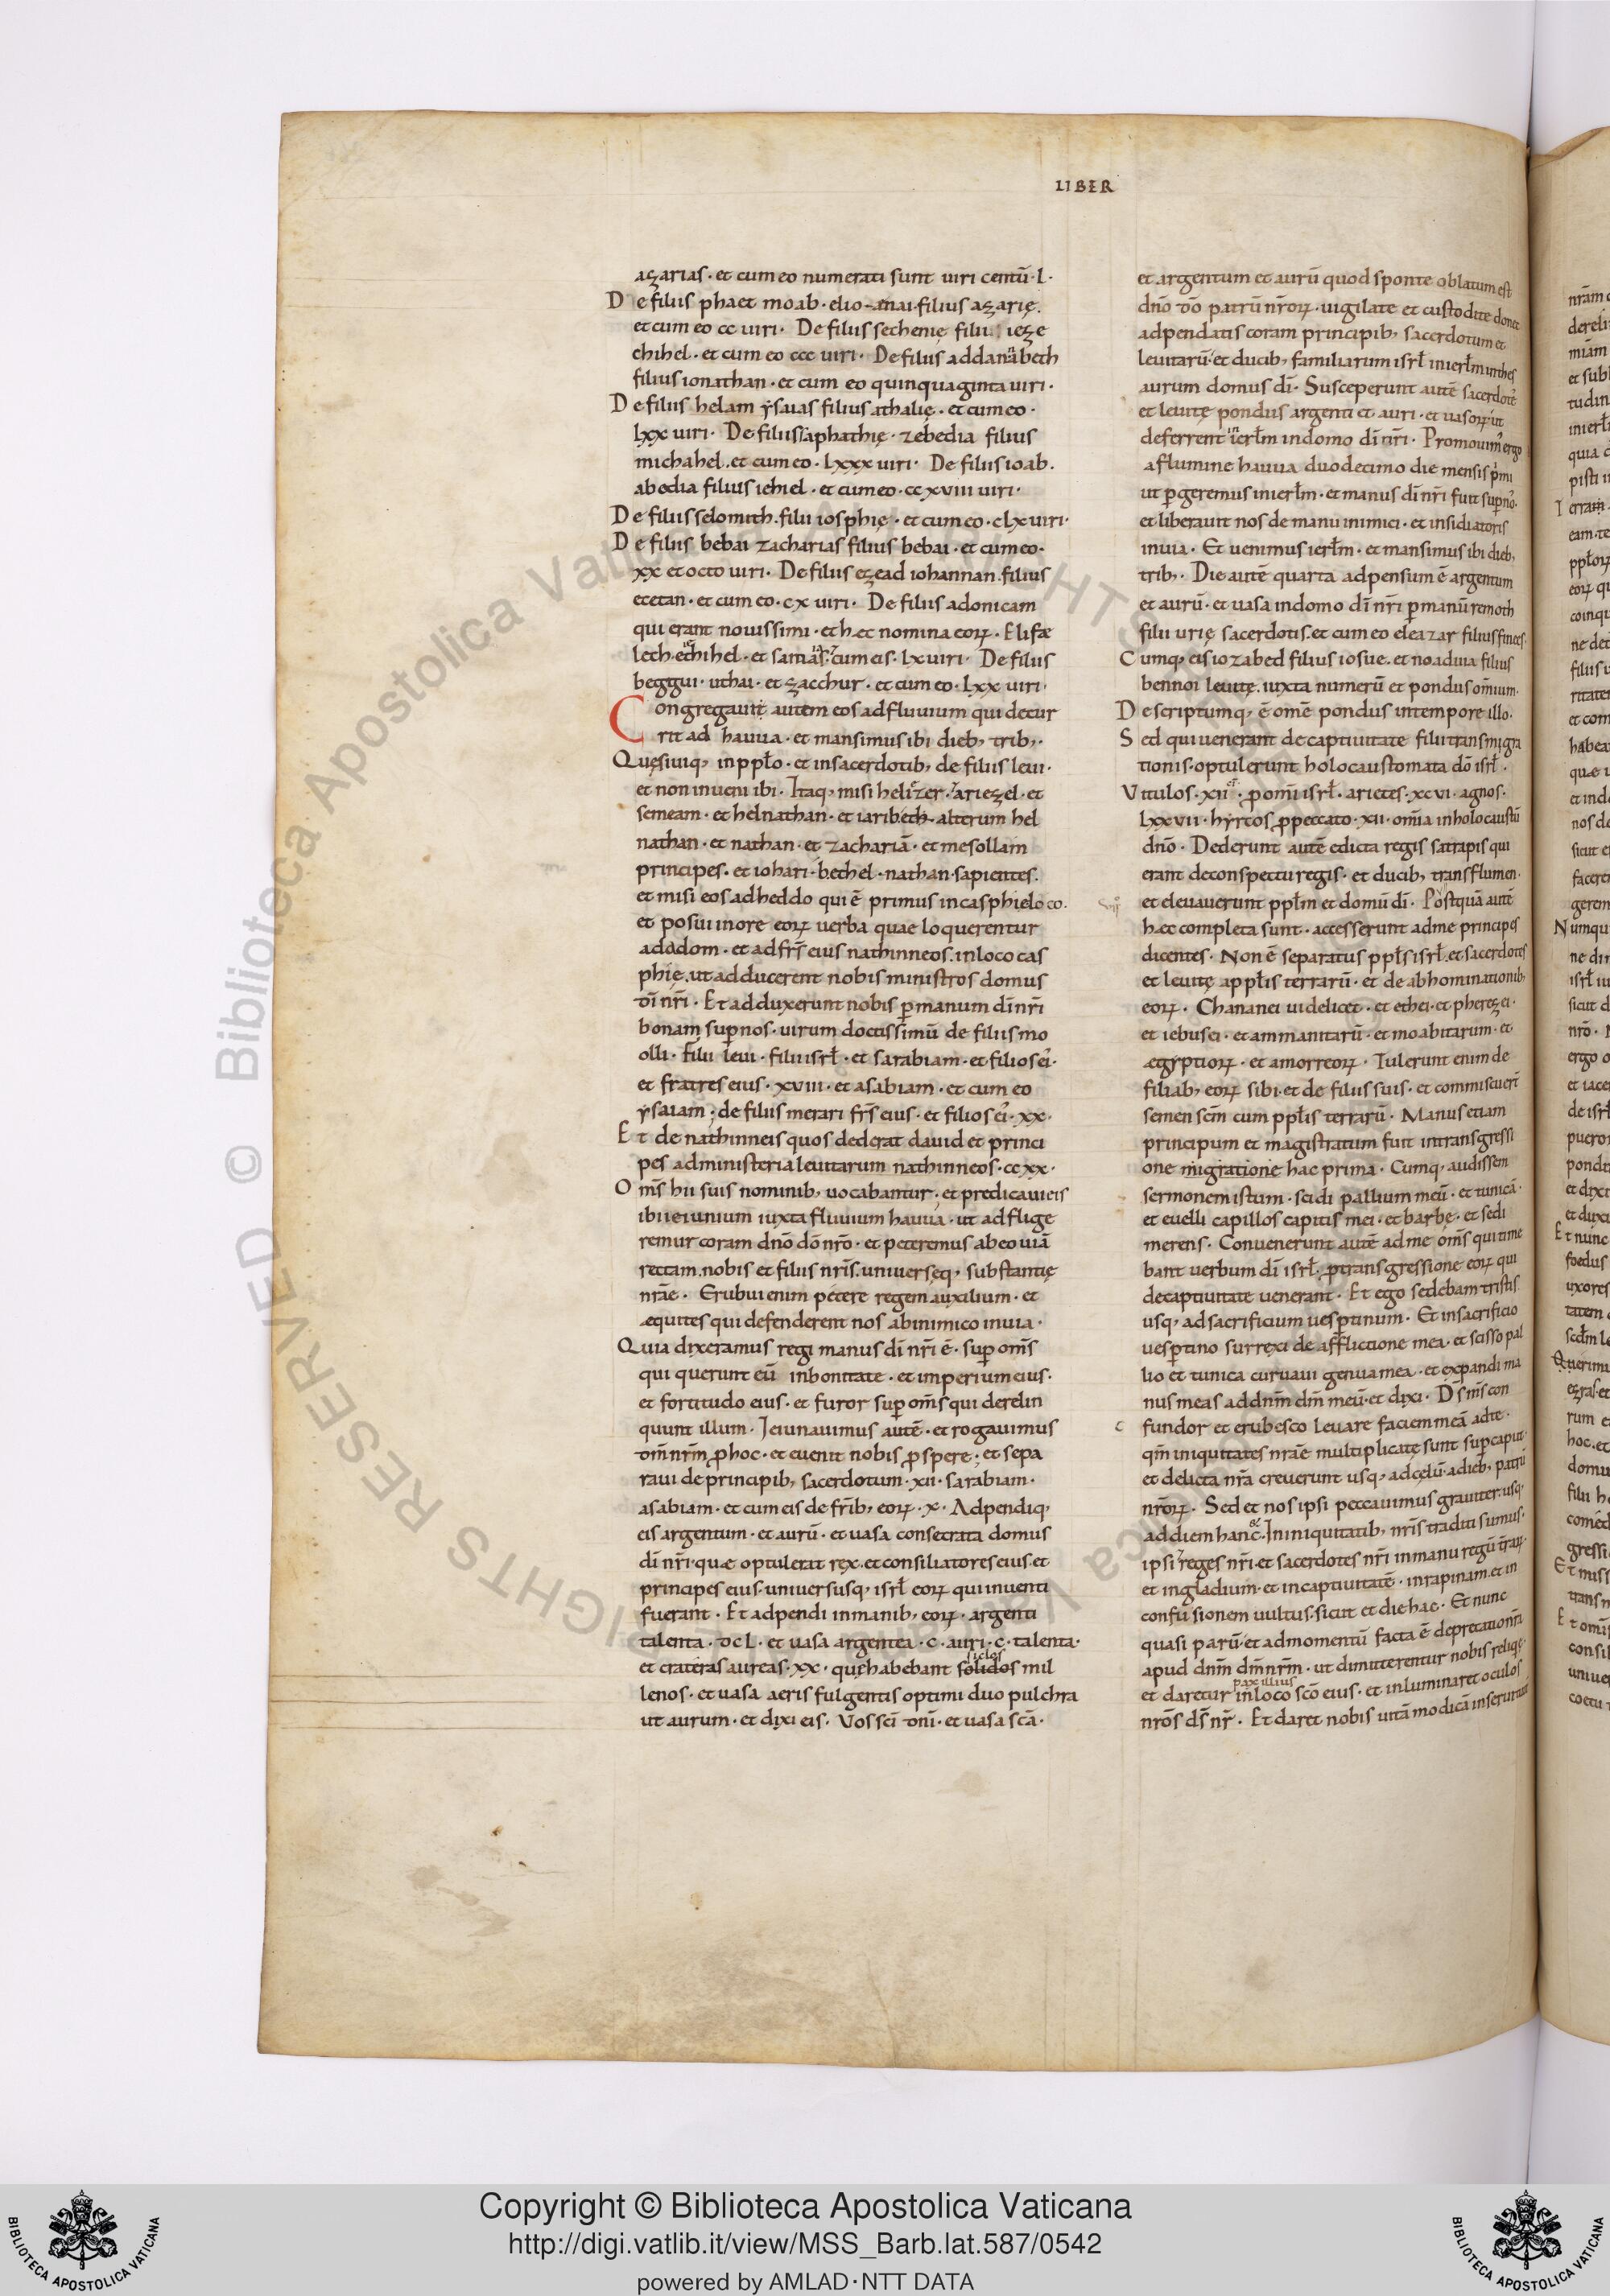 LIBER
azarias · et cum eo numerati sunt uiri centū · l ·
De filiis phaet moab · elio enai · filius azarię ·
et cum eo cc uiri · De filiis sechenię filii ieze
chihel · et cum eo ccc uiri · De filiis addan abeth
filius ionathan · et cum eo quinquaginta uiri ·
De filiis helam ẏsaias filius athalię · et cum eo ·
lxx uiri · De filiis saphathię · zebedia filius
michahel · et cum eo · lxxx uiri · De filiis ioab ·
abedia filius iehiel · et cum eo · ccxviii uiri ·
De filiis selomith · filii iosphię · et cum eo · clx uiri ·
De filiis bebai zacharias filius bebai · et cum eo ·
xx et octo uiri · De filiis ezead iohannan · filius
ecetan · et cum eo · cx uiri · De filiis adonicam
qui erant nouissimi · et hæc nomina eoꝝ · Elifæ
lech · et hihel · et samaias · cum eis · lx uiri · De filiis
beggui · uthai · et zacchur · et cum eo · lxx uiri ·
Congregauit autem eos ad fluuium qui decur
rit ad hauua · et mansimus ibi dieb, trib, ·
Quęsiuiq, in ppło · et in sacerdotib, de filiis leui ·
et non inueni ibi · Itaq, misi heliezer · ariezel · et
semeam · et helnathan · et iaribeth · alterum hel
nathan · et nathan · et zachariā · et mesollam
principes · et iohari · bethel · nathan · sapientes ·
et misi eos ad heddo qui ē primus in casphię loco ·
et posui in ore eoꝝ uerba quae loquerentur
ad adom · et ad fr̄s eius nathinneos · in loco cas
phię · ut adducerent nobis ministros domus
dī nr̄i · Et adduxerunt nobis ꝑ manum dī nr̄i
bonam sup nos · uirum doctissimū de filiis mo
olli · filii leui · filii isrł · et sarabiam · et filios ei ·
et fratres eius · xviii · et asabiam · et cum eo
ẏsaiam ; de filiis merari fr̄s eius · et filios ei · xx ·
Et de nathinneis quos dederat dauid et princi
pes ad ministeria leuitarum nathinneos · ccxx ·
Om̄s hii suis nominib, uocabantur · et predicaui eis
ibi ieiunium iuxta fluuium hauua · ut adflige
remur coram dn̄o dō nr̄o · et peteremus ab eo uiā
rectam nobis et filiis nr̄is · uniuersęq, substantię
nr̄ae · Erubui enim petere regem auxilium · et
æquites qui defenderent nos ab inimico in uia ·
Quia dixeramus regi manus dī nr̄i ē · sup om̄s
qui querunt eū in bonitate · et imperium eius ·
et fortitudo eius · et furor sup om̄s qui derelin
quunt illum · Ieiunauimus autē · et rogauimus
dm̄ nr̄m ꝓ hoc · et euenit nobis ꝓspere ; et sepa
raui de principib, sacerdotum · xii · sarabiam ·
asabiam · et cum eis de fr̄ib, eoꝝ · x · Adpendiq,
eis argentum · et aurū · et uasa consecrata domus
dī nr̄i · quæ optulerat rex · et consiliatores eius · et
principes eius · uniuersusq, isrł eoꝝ qui inuenti
fuerant · Et adpendi in manib, eoꝝ · argenti
talenta · dcl · et uasa argentea · c · auri · c · talenta ·
siclos
et crateras aureas · xx · quę habebant solidos mil
lenos · et uasa aeris fulgentis optimi duo pulchra
ut aurum · et dixi eis · Vos scī dnī · et uasa scā ·
et argentum et aurū quod sponte oblatum est
dn̄o dō patrū nr̄oꝝ · uigilate et custodite donec
adpendatis coram principib, sacerdotum et
leuitarū · et ducib, familiarum isrł in ierłm in thes
aurum domus dī · Susceperunt autē sacerdotes
et leuitę pondus argenti et auri · et uasoꝝ ut
deferrent in ierłm in domo dī nr̄i · Promouim, ergo
a flumine hauua duodecimo die mensis p̄mi
ut ꝑgeremus in ierłm · et manus dī nr̄i fuit sup nos ·
et liberauit nos de manu inimici · et insidiatoris
in uia · Et uenimus ierłm · et mansimus ibi dieb,
trib, · Die autē quarta adpensum ē argentum
et aurū · et uasa in domo dī nr̄i ꝑ manū remoth
filii urię sacerdotis · et cum eo eleazar filius finees ·
Cumq, eis iozabed filius iosue · et noadiua filius
bennoi leuitę · iuxta numerū et pondus om̄ium ·
Descriptumq, ē om̄e pondus in tempore illo ·
Sed qui uenerant de captiuitate filii transmigra
tionis · optulerunt holocaustomata dō isrł ·
Vitulos · xii · ꝓ om̄i isrł · arietes · xcvi · agnos ·
lxxvii · hẏrcos ꝓ peccato · xii · om̄ia in holocaustū
dn̄o · Dederunt autē edicta regis satrapis qui
erant de conspectu regis · et ducib, trans flumen ·
et eleuauerunt ppłm et domū dī · Postquā autē
hæc completa sunt · accesserunt ad me principes
dicentes · Non ē separatus ppłs isrł · et sacerdotes
et leuitę a ppłis terrarū · et de abhominationib,
eoꝝ · Chananei uidelicet · et ethei · et pherezei ·
et iebusei · et ammanitarū · et moabitarum · et
ægẏptioꝝ · et amorreoꝝ · Tulerunt enim de
filiab, eoꝝ sibi · et de filiis suis · et commiscuer̄
semen sc̄m cum ppłis terrarū · Manus etiam
principum et magistratum fuit in transgressi
one migratione hac prima · Cumq, audissem
sermonem istum · scidi pallium meū · et tunicā ·
et euelli capillos capitis mei · et barbę · et sedi
merens · Conuenerunt autē ad me om̄s qui time
bant uerbum dī isrł · ꝓ transgressione eoꝝ qui
de captiuitate uenerant · Et ego sedebam tristis
usq, ad sacrificium uesptinum · Et in sacrificio
uesptino surrexi de afflictione mea · et scisso pal
lio et tunica curuaui genua mea · et expandi ma
nus meas ad dnm̄ dm̄ meū · et dixi · Ds̄ ms̄ con
fundor et erubesco leuare faciem meā ad te ·
qm̄ iniquitates nr̄ae multiplicatę sunt sup caput ·
et delicta nr̄a creuerunt usq, ad cęlū · a dieb, patrū
nr̄oꝝ · Sed et nos ipsi peccauimus grauiter · usq,
ad diem hanc · In iniquitatib, nr̄is traditi sumus ·
ipsi reges nr̄i · et sacerdotes nr̄i in manu regū tr̄aꝝ ·
et in gladium · et in captiuitatē · in rapinam · et in
confusionem uultus · sicut et die hac · Et nunc
quasi parū · et ad momentū facta ē deprecatio nr̄a
apud dnm̄ dm̄ nr̄m · ut dimitterentur nobis reliqę ·
pax illius
et daretur in loco scō eius · et inluminaret oculos
nr̄os ds̄ nr̄ · Et daret nobis uitā modicā in seruitute
Copyright © Biblioteca Apostolica Vaticana
http://digi.vatlib.it/view/MSS_Barb.lat.587/0542
powered by AMLAD·NTT DATA
BIBLIOTECA APOSTOLICA VATICANA
BIBLIOTECA APOSTOLICA VATICANA